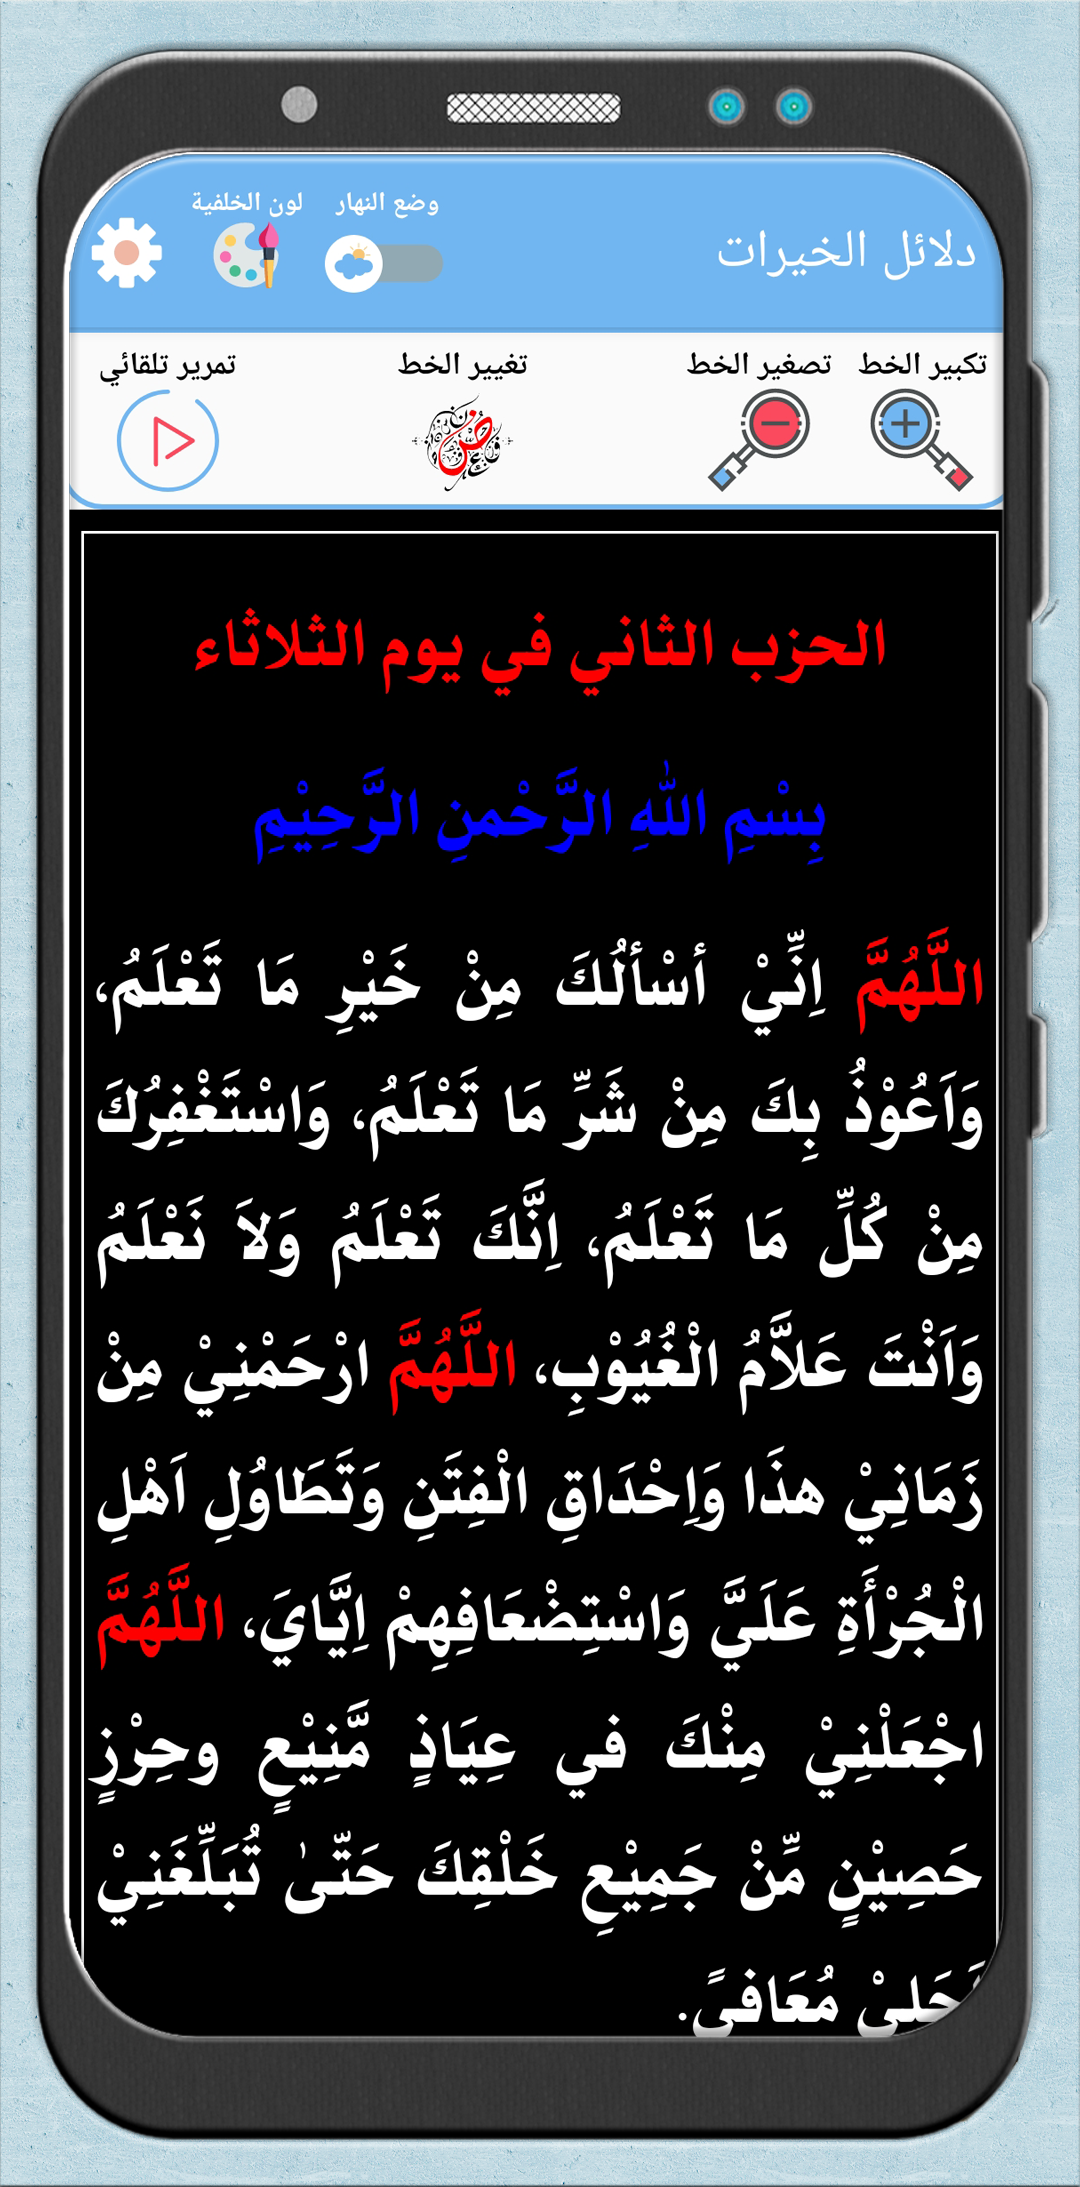 وضع النهار
لون الخلفية
دلائل الخيرات
تكبير الخط
تصغير الخط
تغيير الخط
تمرير تلقائي
الحزب الثاني في يوم الثلاثاء
بِسْمِ اللهِ الرَّحْمنِ الرَّحِيْمِ
اللَّهُمَّ اِنِّيْ أسْألُكَ مِنْ خَيْرِ مَا تَعْلَمُ،
وَاَعُوْذُ بِكَ مِنْ شَرِّ مَا تَعْلَمُ، وَاسْتَغْفِرُكَ
مِنْ كُلِّ مَا تَعْلَمُ، اِنَّكَ تَعْلَمُ وَلاَ نَعْلَمُ
وَاَنْتَ عَلاَّمُ الْغُيُوْبِ، اللَّهُمَّ ارْحَمْنِيْ مِنْ
زَمَانِيْ هذَا وَاِحْدَاقِ الْفِتَنِ وَتَطَاوُلِ اَهْلِ
الْجُرْأَةِ عَلَيَّ وَاسْتِضْعَافِهِمْ اِيَّايَ، اللَّهُمَّ
اجْعَلْنِيْ مِنْكَ في عِيَاذٍ مَّنِيْعٍ وحِرْزٍ
حَصِيْنٍ مِّنْ جَمِيْعِ خَلْقِكَ حَتّىٰ تُبَلِّغَنِيْ
اَجَلِيْ مُعَافىً.